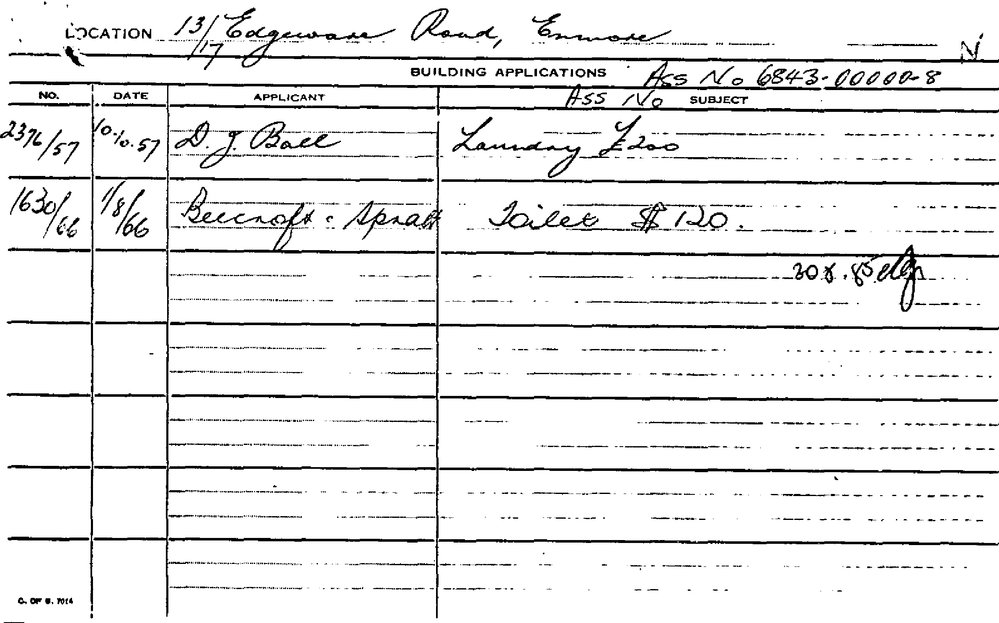 LOCATION 13/17 Edgeware Road, Enmore N
BUILDING APPLICATIONS Ass No 6843-00000-8
NO. DATE APPLICANT Ass No SUBJECT
2376/57 10.10.57 D. J. Ball Laundry £200
1630/66 1/8/66 Beecroft & Spratt Toilet $120.
C. OF S. 7014